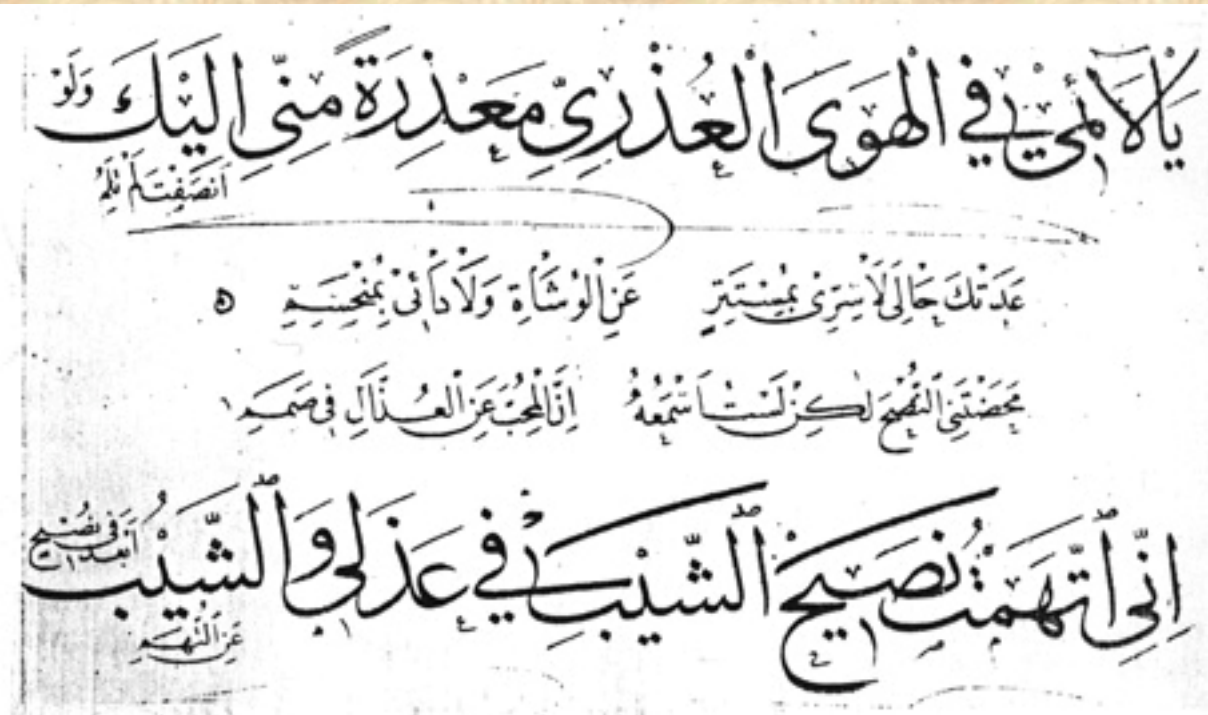 يَا لَائِمِي فِي الْهَوَى الْعُذْرِيِّ مَعْذِرَةً مِنِّي اِلَيْكَ وَلَوْ اَنْصَفْتَ لَمْ تَلُمِ
عَدَتْكَ حَالِيَ لَا سِرِّي بِمُسْتَتِرٍ عَنِ الْوُشَاةِ وَلَا دَائِي بِمُنْحَسِمِ
مَحَضْتَنِي النُّصْحَ لٰكِنْ لَسْتُ اَسْمَعُهُ اِنَّ الْمُحِبَّ عَنِ الْعُذَّالِ فِي صَمَمِ
اِنِّي اتَّهَمْتُ نَصِيحَ الشَّيْبِ فِي عَذَلِي وَالشَّيْبُ اَبْعَدُ فِي نُصْحٍ عَنِ التُّهَمِ